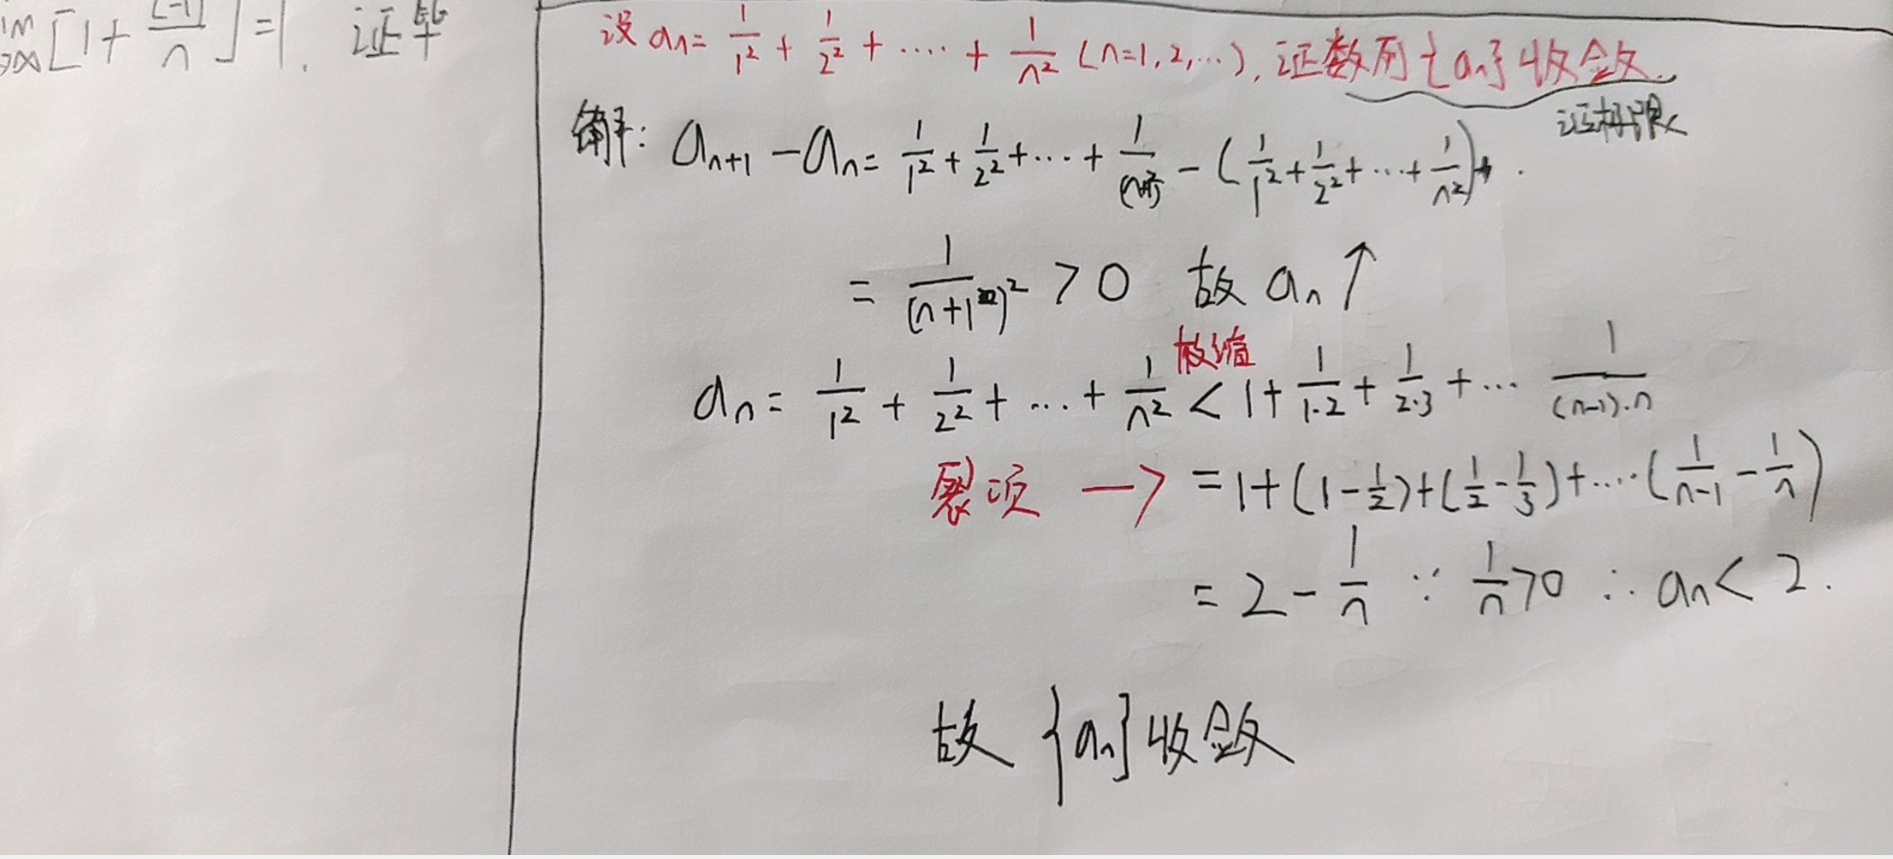 [1+ (-1)/n ]=1. 证毕
设 aₙ= 1/1² + 1/2² + ···· + 1/n² (n=1,2,…), 证数列{aₙ}收敛.
证极限
解: aₙ₊₁ -aₙ= 1/1² + 1/2² +···+ 1/(n+1)² - (1/1² + 1/2² +···+ 1/n²)
= 1/(n+1)² >0 故 aₙ↑
放缩
aₙ= 1/1² + 1/2² + ··· + 1/n² < 1+ 1/1·2 + 1/2·3 + ··· 1/(n-1)·n
裂项 → =1+(1-1/2)+(1/2-1/3)+····(1/n-1 - 1/n)
= 2- 1/n ∵ 1/n>0 ∴ aₙ< 2.
故 {aₙ}收敛